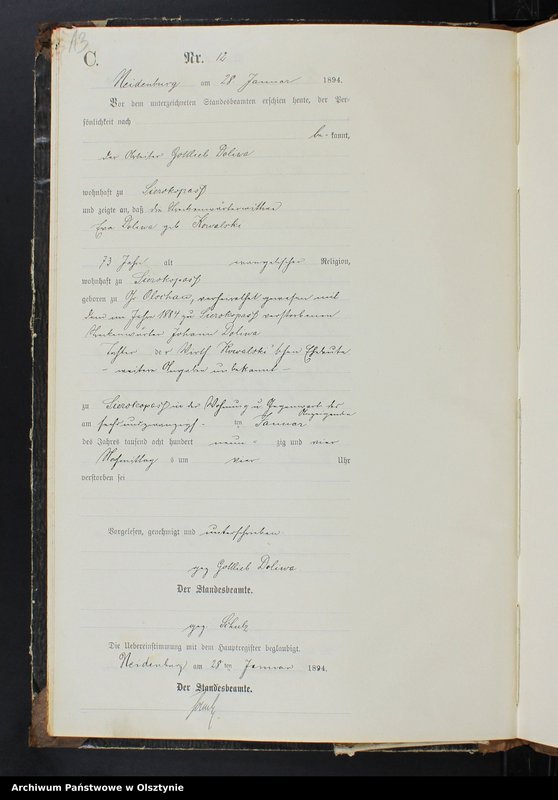 13
C.
Nr. 12
Neidenburg am 28 Januar 1894.
Vor dem unterzeichneten Standesbeamten erschien heute, der Per-
sönlichkeit nach
be- kannt,
der Arbeiter Gottlieb Doliwa
wohnhaft zu Sierokopaß
und zeigte an, daß die
Eva Doliwa geb Kowalski
73 Jahr alt evangelischer Religion,
wohnhaft zu Sierokopaß
geboren zu Gr Olschau, verheirathet gewesen mit
dem im Jahre 1884 zu Sierokopaß verstorbenen
Johann Doliwa
Tochter der Wirth Kowalski'schen Eheleute
- weitere Angaben unbekannt -
zu Sierokopaß in der Wohnung u Gegenwart des
Anzeigenden
am sechsundzwanzigs- ten Januar
des Jahres tausend acht hundert neun - zig und vier
Nachmittag s um vier Uhr
verstorben sei
Vorgelesen, genehmigt und unterschrieben
gez Gottlieb Doliwa.
Der Standesbeamte.
gez. Schulz
Die Uebereinstimmung mit dem Hauptregister beglaubigt.
Neidenburg am 28 ten Januar 1894.
Der Standesbeamte.
Schulz
Archiwum Państwowe w Olsztynie